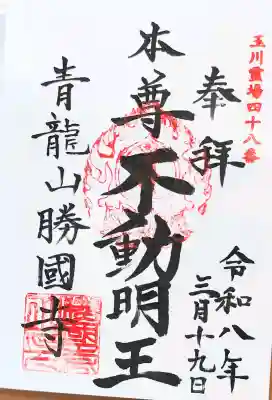 玉川霊場四十八番
奉拝
令和八年
三月十九日
本尊
不動明王
青龍山勝國寺